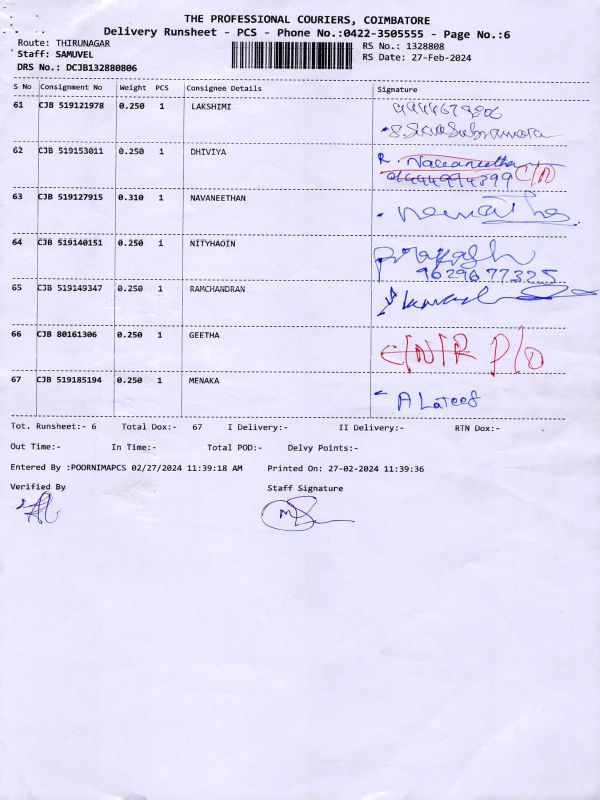 THE PROFESSIONAL COURIERS, COIMBATORE
Delivery Runsheet - PCS - Phone No.:0422-3505555 - Page No.:6
Route: THIRUNAGAR RS No.: 1328808
Staff: SAMUVEL RS Date: 27-Feb-2024
DRS No.: DCJB132880806
S No Consignment No Weight PCS Consignee Details Signature
61 CJB 519121978 0.250 1 LAKSHIMI
62 CJB 519153011 0.250 1 DHIVIYA R.
63 CJB 519127915 0.310 1 NAVANEETHAN
64 CJB 519140151 0.250 1 NITYHAOIN Prakash
9629677325
65 CJB 519149347 0.250 1 RAMCHANDRAN
66 CJB 80161306 0.250 1 GEETHA
67 CJB 519185194 0.250 1 MENAKA A Lateef
Tot. Runsheet:- 6 Total Dox:- 67 I Delivery:- II Delivery:- RTN Dox:-
Out Time:- In Time:- Total POD:- Delvy Points:-
Entered By :POORNIMAPCS 02/27/2024 11:39:18 AM Printed On: 27-02-2024 11:39:36
Verified By Staff Signature